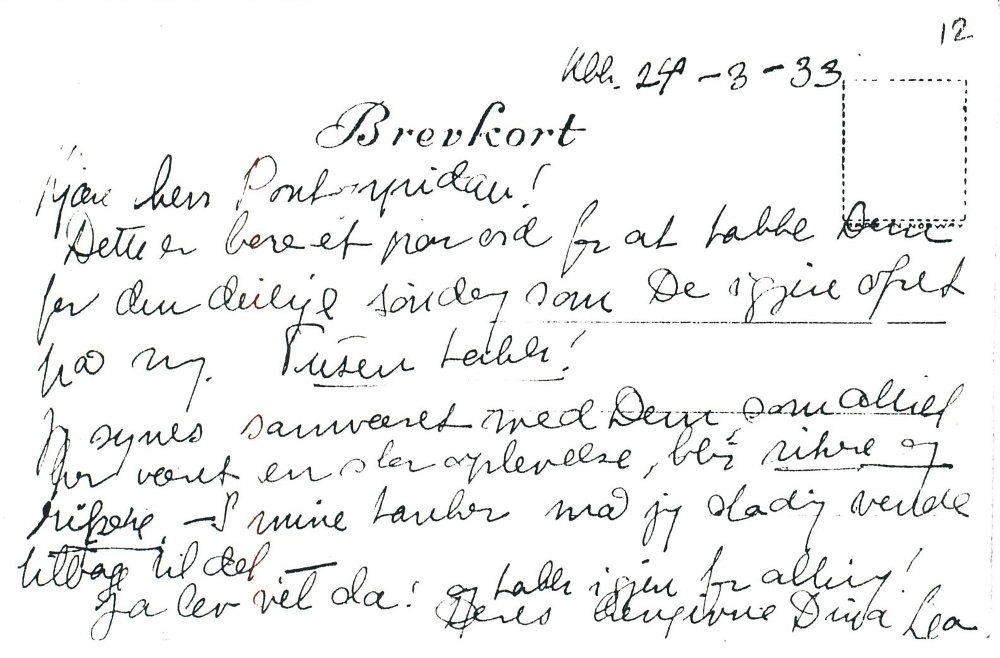 12
Kbh. 24-3-33
Brevkort
MADE IN NORWAY
Kjære herr Pontoppidan!
Dette er bare et par ord for at takke Dem
for den deilige søndag som De igjen
på ny. Tusen takk!
Jeg synes samværet med Dem, som alltid
har været en stor oplevelse, blir rikere og
rikere. – I mine tanker må jeg stadig vende
tilbage til det –
Ja lev vel da! og takk igjen for allting!
Deres hengivne Dina Lea